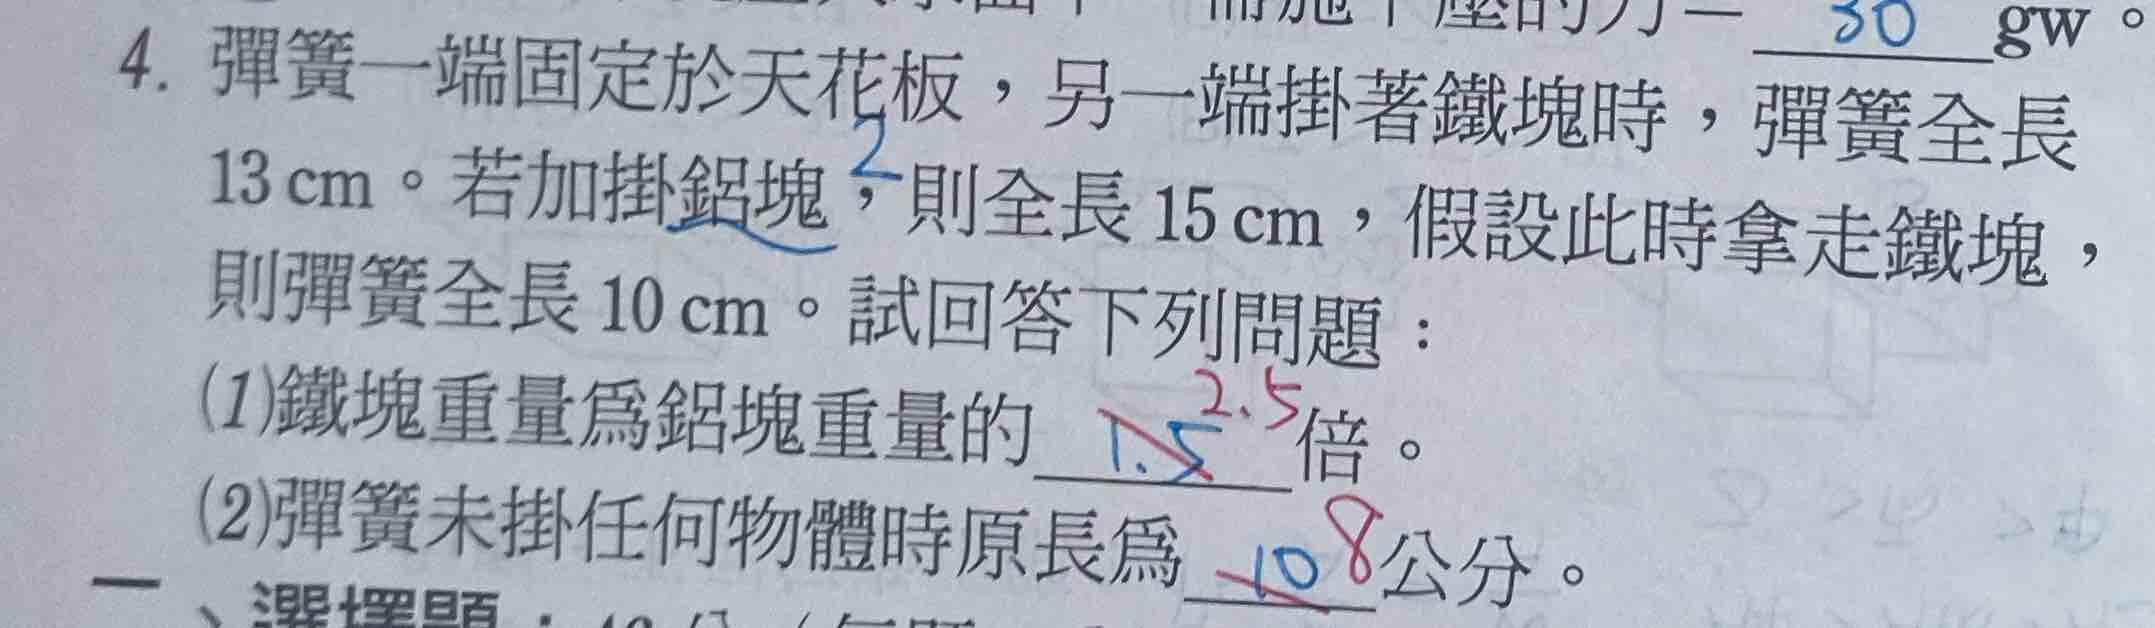 30 gw。
4. 彈簧一端固定於天花板,另一端掛著鐵塊時,彈簧全長
13 cm。若加掛鋁塊,則全長 15 cm,假設此時拿走鐵塊,
2
則彈簧全長 10 cm。試回答下列問題:
(1)鐵塊重量為鋁塊重量的 1.5 2.5 倍。
(2)彈簧未掛任何物體時原長為 10 8 公分。
選擇題: